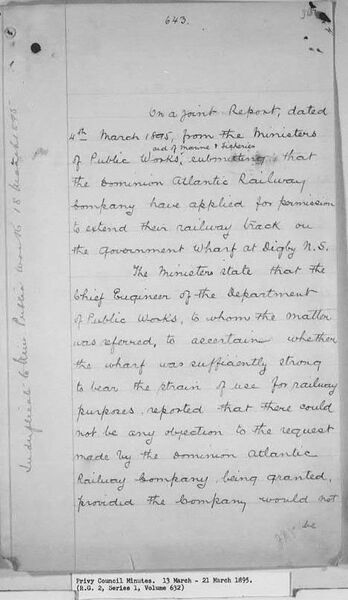 643.
On a Joint Report, dated
4th March 1895, from the Ministers
and of Marine & Fisheries
of Public Works, submitting that
the Dominion Atlantic Railway
Company have applied for permission
to extend their railway track on
the Government Wharf at Digby N.S.
The Ministers state that the
Chief Engineer of the Department
of Public Works, to whom the matter
was referred, to ascertain whether
the wharf was sufficiently strong
to bear the strain of use for railway
purposes, reported that there could
not be any objection to the request
made by the Dominion Atlantic
Railway Company being granted,
provided the Company would not
be
Public Works 18 March 1895
Privy Council Minutes. 13 March - 21 March 1895.
(R.G. 2, Series 1, Volume 632)